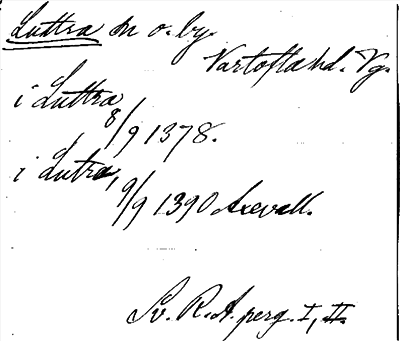 Luttra sn o. by.
Vartofta hd. Vg.
i Luttra
8/9 1378.
i Lutra,
9/9 1390 Axevall.
Sv. R. A. perg. I, II.